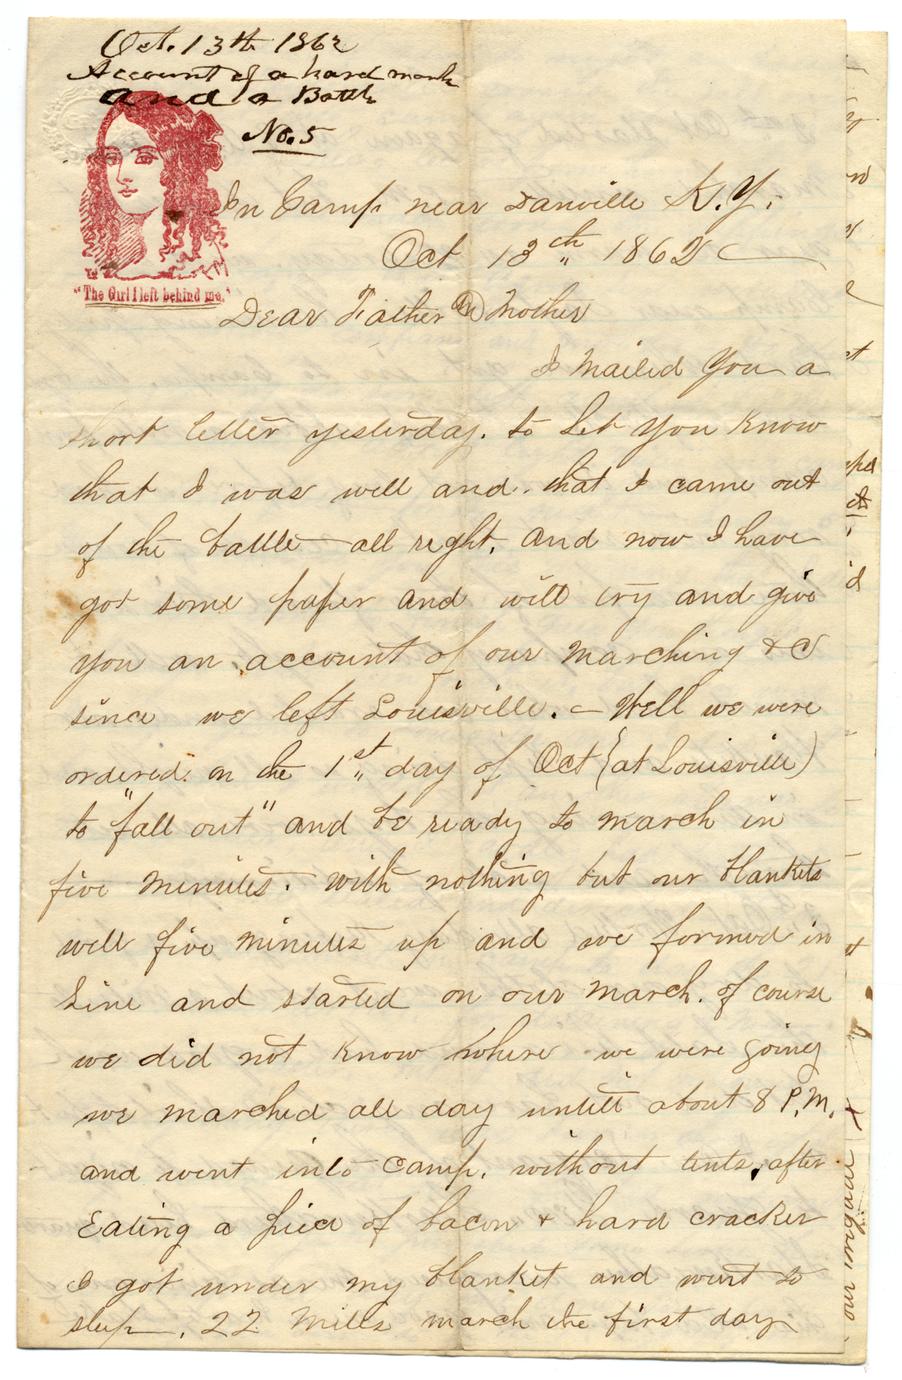 Oct. 13th 1862
Account of a hard march
and a Battle
No. 5
"The Girl I left behind me."
In Camp near Danville K.Y.
Oct 13th 1862
Dear Father and Mother
I mailed You a
short letter yesterday. to let you know
that I was well and. that I came out
of the battle all right. and now I have
got some paper and will try and give
you an account of our marching & C
since we left Louisville. - Well we were
ordered. on the 1st day of Oct (at Louisville)
to "fall out" and be ready to march in
five minutes. with nothing but our blankets
well five minutes up and we formed in
Line and started on our march. of course
we did not know where we were going
we marched all day untill about 8 P.M.
and went into camp. without tents, after
Eating a piece of bacon & hard cracker
I got under my blanket and went to
sleep. 22 Miles march the first day